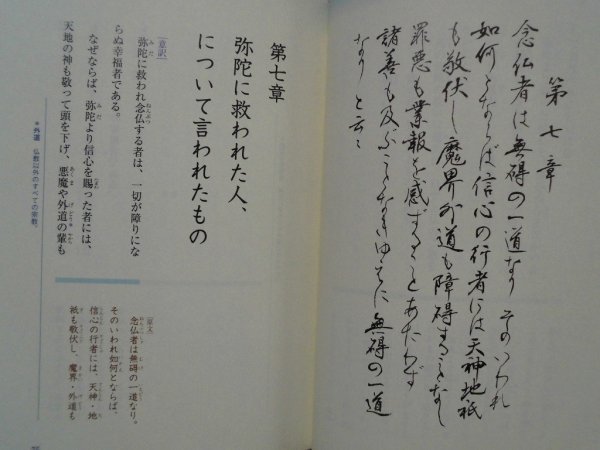 第七章
念仏者は無碍の一道なり そのいわれ
如何とならば信心の行者には天神地祇
も敬伏し魔界外道も障碍することなし
罪悪も業報を感ずることあたわず
諸善も及ぶことなきゆえに無碍の一道
なりと云々
第七章
弥陀に救われた人、
について言われたもの
［意訳］
弥陀に救われ念仏する者は、一切が障りにな
らぬ幸福者である。
なぜならば、弥陀より信心を賜った者には、
天地の神も敬って頭を下げ、悪魔や外道の輩も
［原文］
念仏者は無碍の一道なり。
そのいわれ如何とならば、
信心の行者には、天神・地
祇も敬伏し、魔界・外道も
＊外道 仏教以外のすべての宗教。